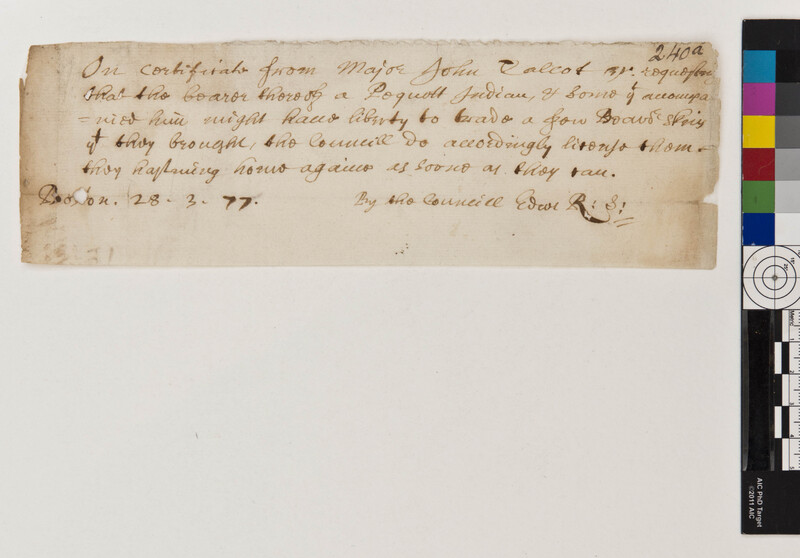 240a
On certificate from Major John Talcot requesting
that the bearer thereof a Pequott Indian, & some yt accompa
=nied him might have liberty to trade a few Beavr Skins
yt they brought, the Councill do accordingly license them
they hastning home againe as soone as they can.
Boston. 28. 3. 77.
By the Councill Edw R: S:
AIC PhD Target
©2011 AIC